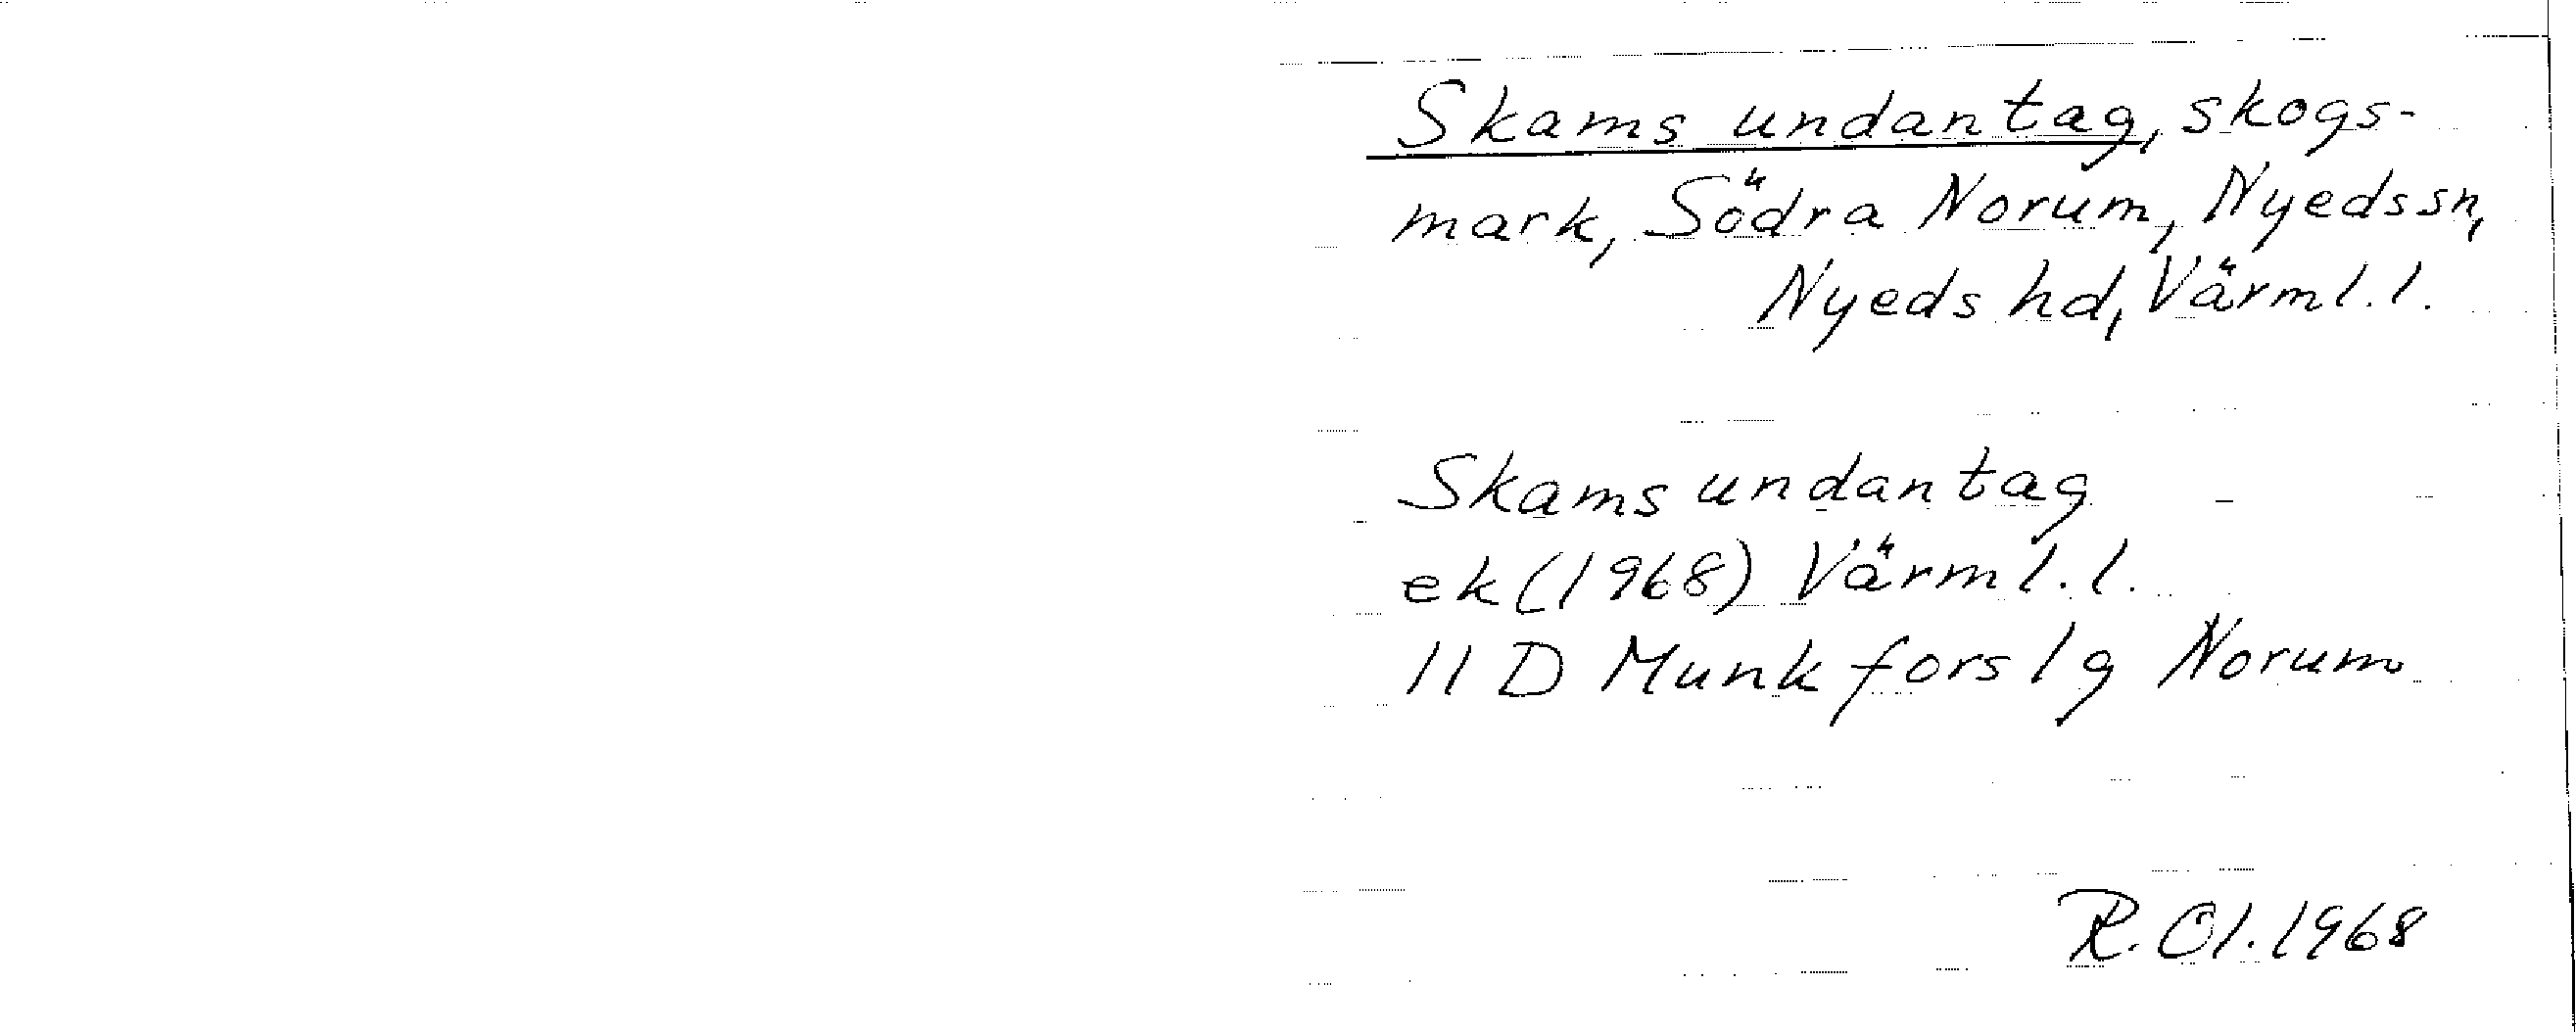 Skams undantag, skogs-
mark, Södra Norum, Nyeds sn,
Nyeds hd, Värml. l.
Skams undantag
ek (1968) Värml. l.
11 D Munkfors 1 g Norum
R. Ol. 1968